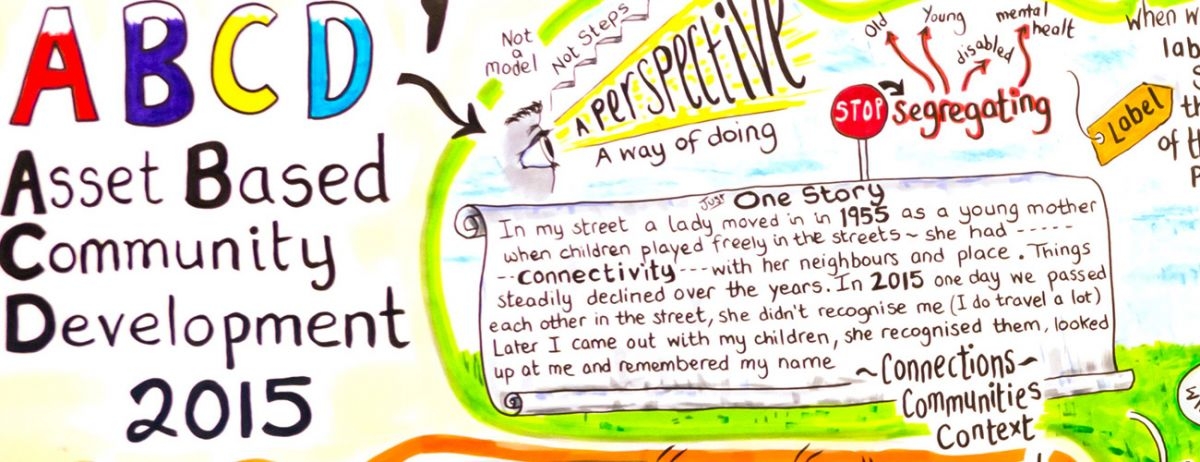 ABCD
Asset Based
Community
Development
2015
Not
a
model
Not Steps
A perspective
A way of doing
STOP
segregating
Old
Young
disabled
mental
healt
Label
when w
lab
of th
Just One Story
In my street a lady moved in in 1955 as a young mother
when children played freely in the streets ~ she had -----
-- connectivity --- with her neighbours and place. Things
steadily declined over the years. In 2015 one day we passed
each other in the street, she didn't recognise me (I do travel a lot)
Later I came out with my children, she recognised them, looked
up at me and remembered my name
~Connections~
Communities
Context